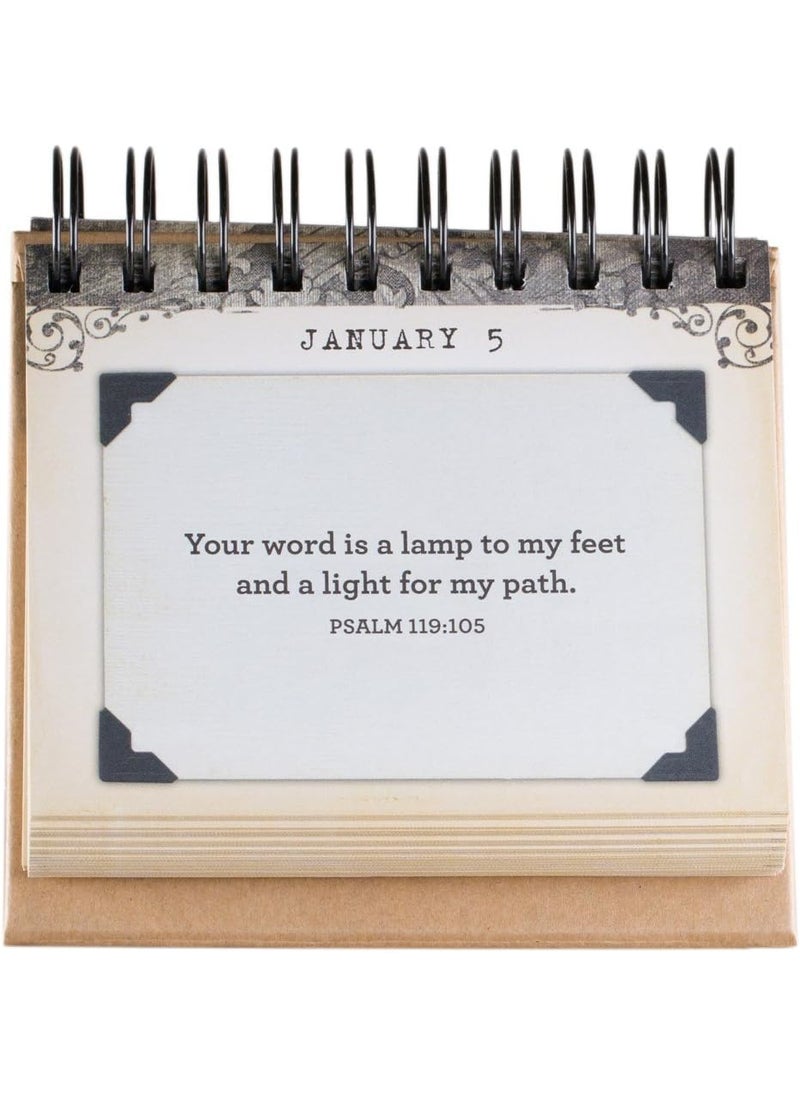 JANUARY 5
Your word is a lamp to my feet
and a light for my path.
PSALM 119:105